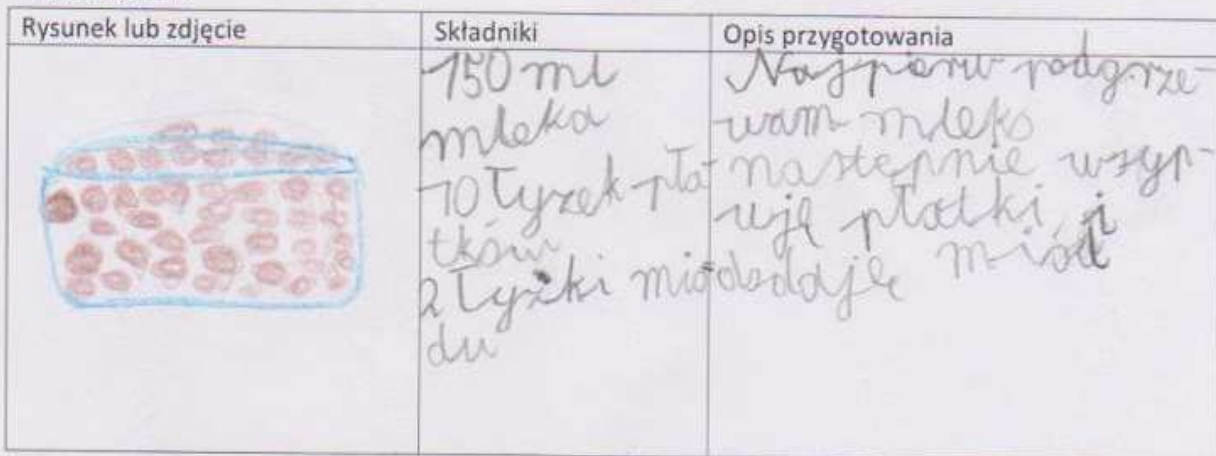 Rysunek lub zdjęcie
Składniki
Opis przygotowania
150 ml
mleka
10 łyżek pła-
tków
2 łyżki mio-
du
Najpierw podgrze-
wam mleko
następnie wsyp-
uję płatki i
dodaję miód